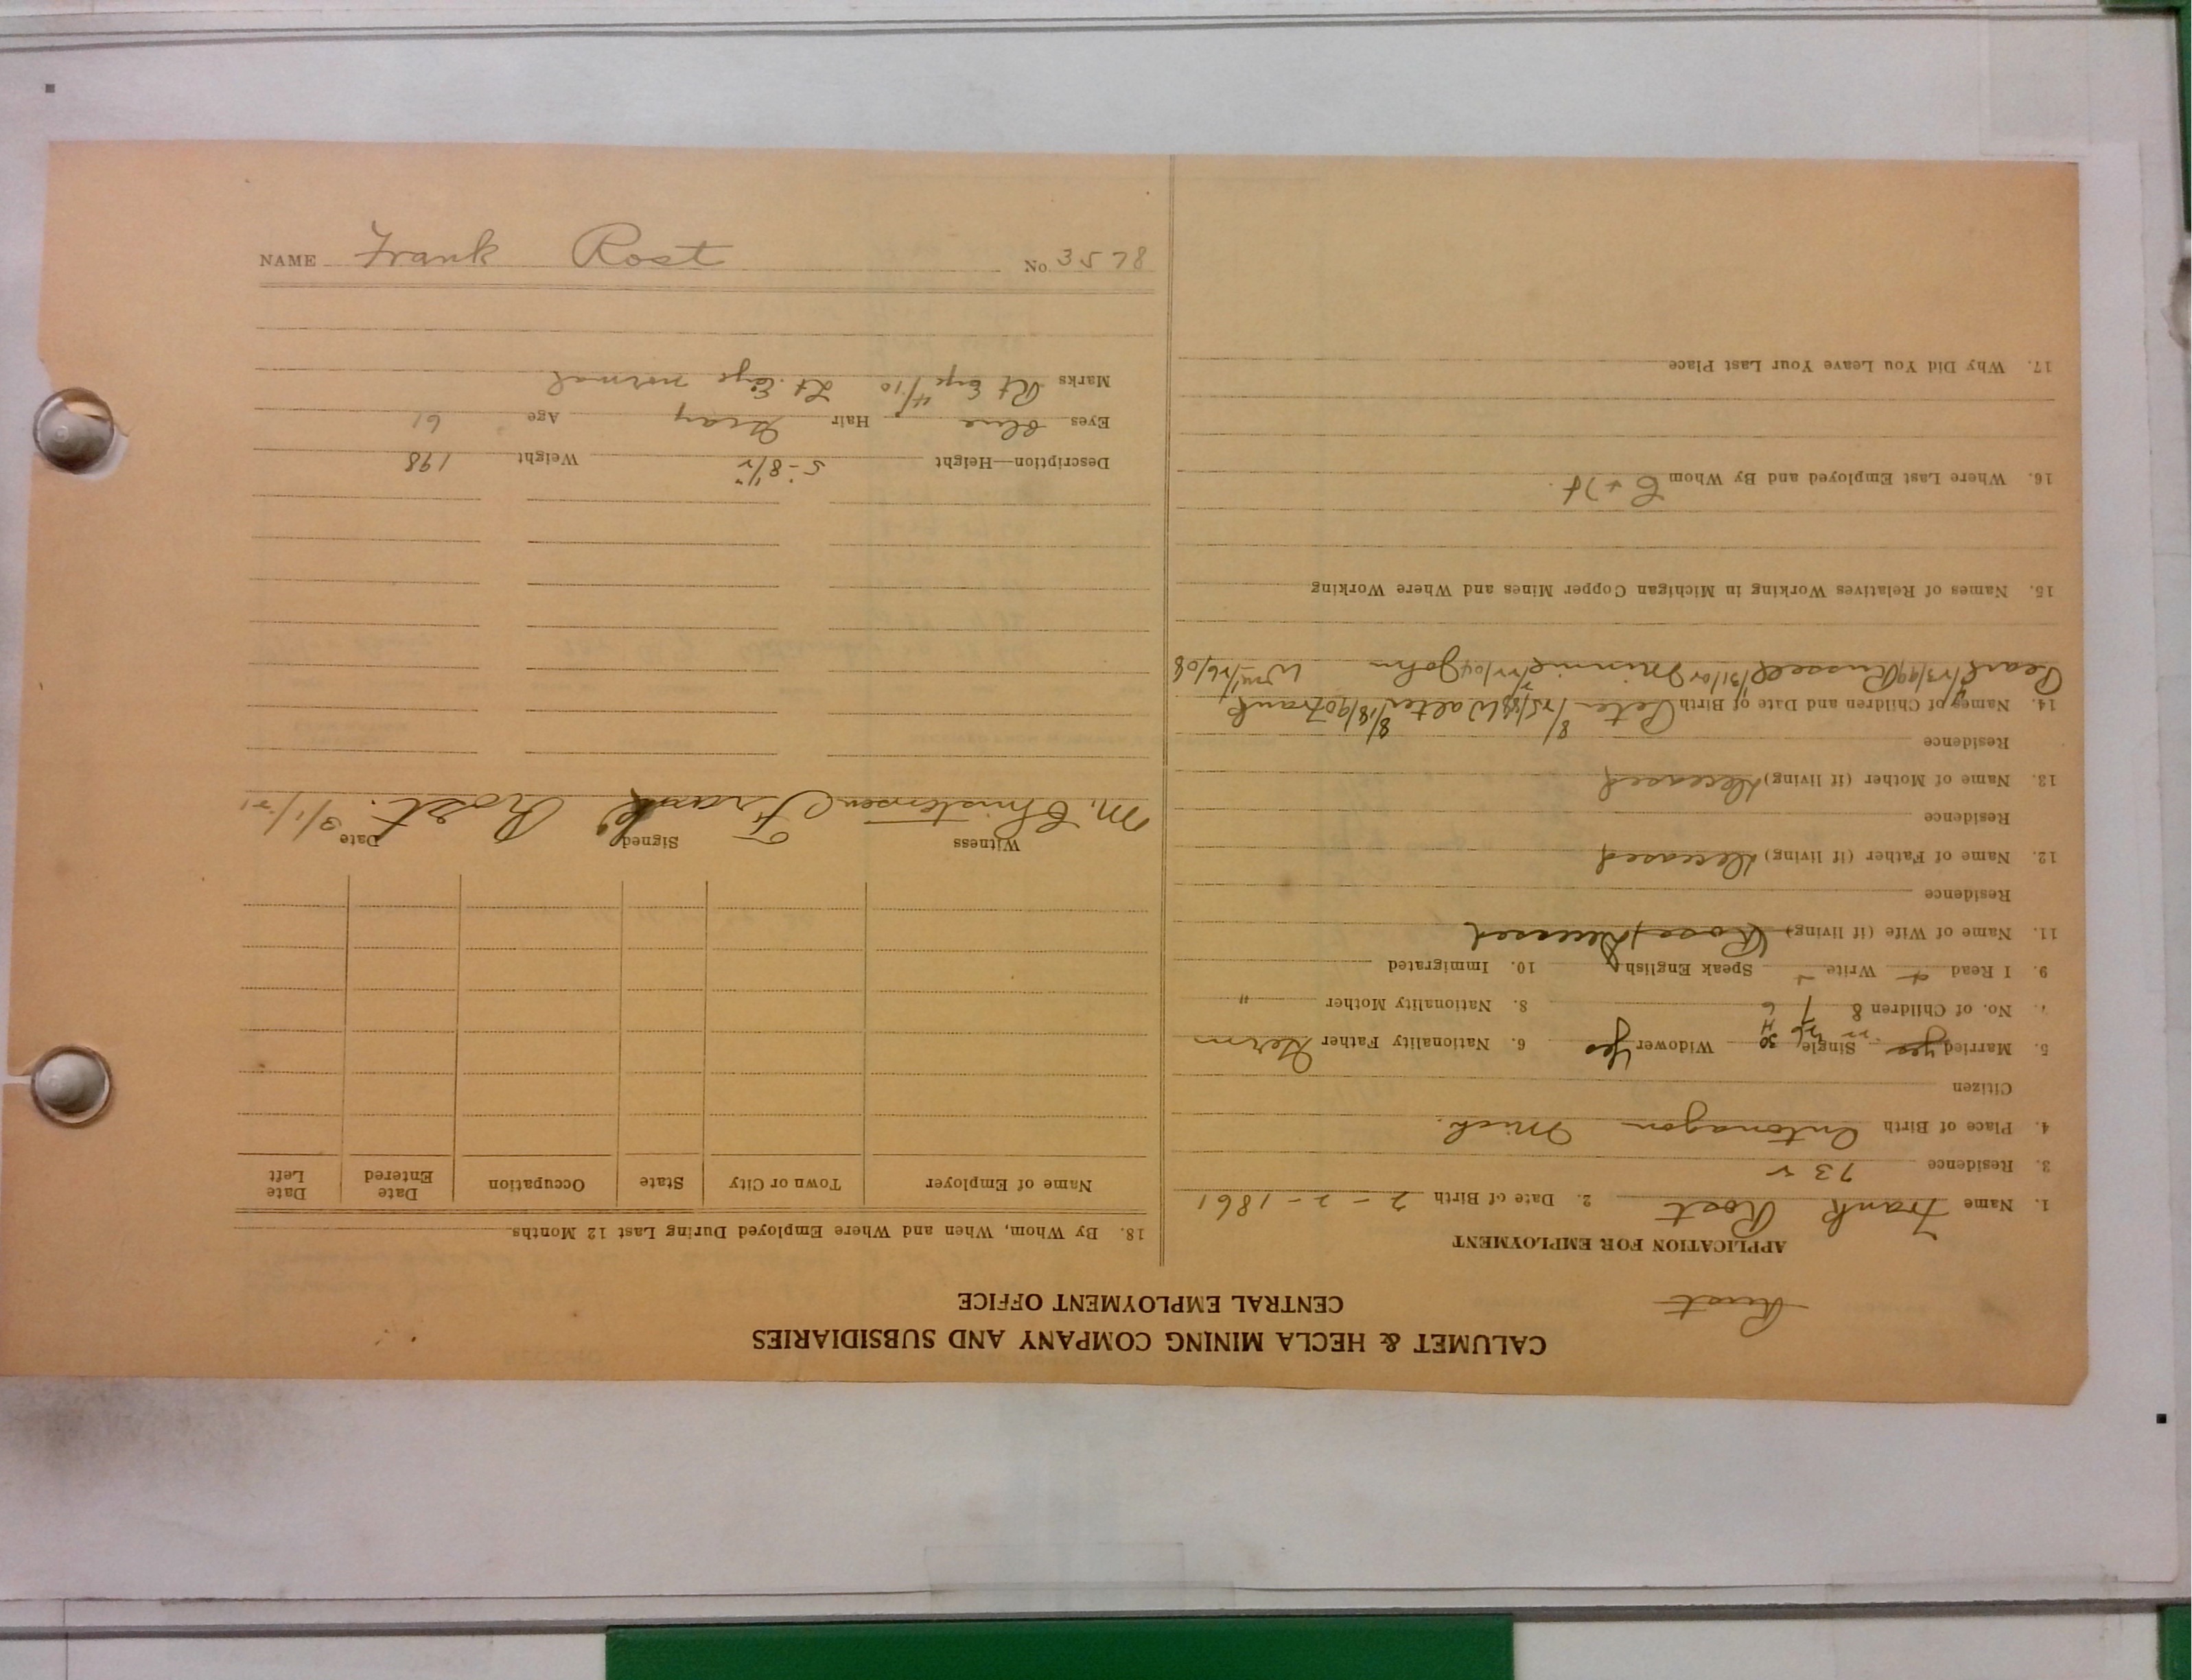 CALUMET & HECLA MINING COMPANY AND SUBSIDIARIES
CENTRAL EMPLOYMENT OFFICE
APPLICATION FOR EMPLOYMENT
1. Name Frank Rost 2. Date of Birth 2-2-1861
3. Residence
4. Place of Birth Ontonagon Mich.
Citizen
5. Married yes Single Widower Yes 6. Nationality Father Germ
7. No. of Children 8 7 6 8. Nationality Mother "
9. I Read Write Speak English 10. Immigrated
11. Name of Wife (if living) Rose, Deceased
Residence
12. Name of Father (if living) Deceased
Residence
13. Name of Mother (if living) Deceased
Residence
14. Names of Children and Date of Birth Peter 8/25/88 Walter 8/18/90 Frank
Pearl Russell Minnie John Wm
15. Names of Relatives Working in Michigan Copper Mines and Where Working
16. Where Last Employed and By Whom C+H.
17. Why Did You Leave Your Last Place
18. By Whom, When and Where Employed During Last 12 Months
Name of Employer Town or City State Occupation Date Entered Date Left
Witness Signed Date
M. Christensen Frank Rost. 3/1/21
Description—Height 5'-8 1/2" Weight 198
Eyes blue Hair Gray Age 61
Marks Rt Eye 4/10 Lt. Eye normal
NAME Frank Rost No. 3578